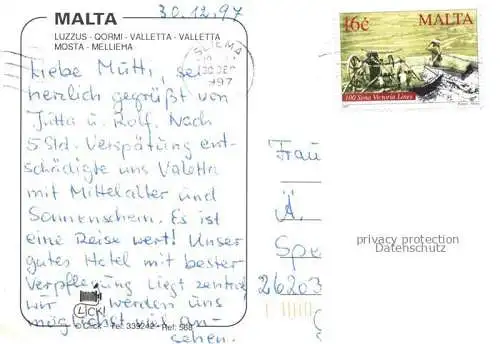 MALTA
30.12.97
LUZZUS - QORMI - VALLETTA - VALLETTA
MOSTA - MELLIEHA
SLIEMA
30 DEC
1997
16c MALTA
100 Sena Victoria Lines
Liebe Mutti, sei
herzlich gegrüßt von
Jutta u. Rolf. Nach
5 Std. Verspätung ent-
schädigte uns Valetta
mit Mittelalter und
Sonnenschein. Es ist
eine Reise wert! Unser
gutes Hotel mit bester
Verpflegung liegt zentral,
wir werden uns
möglichst viel an-
sehen.
CLICK!
© Click - Tel: 339242 - Ref: 568
Frau
Ä.
Spe
26203
privacy protection
Datenschutz